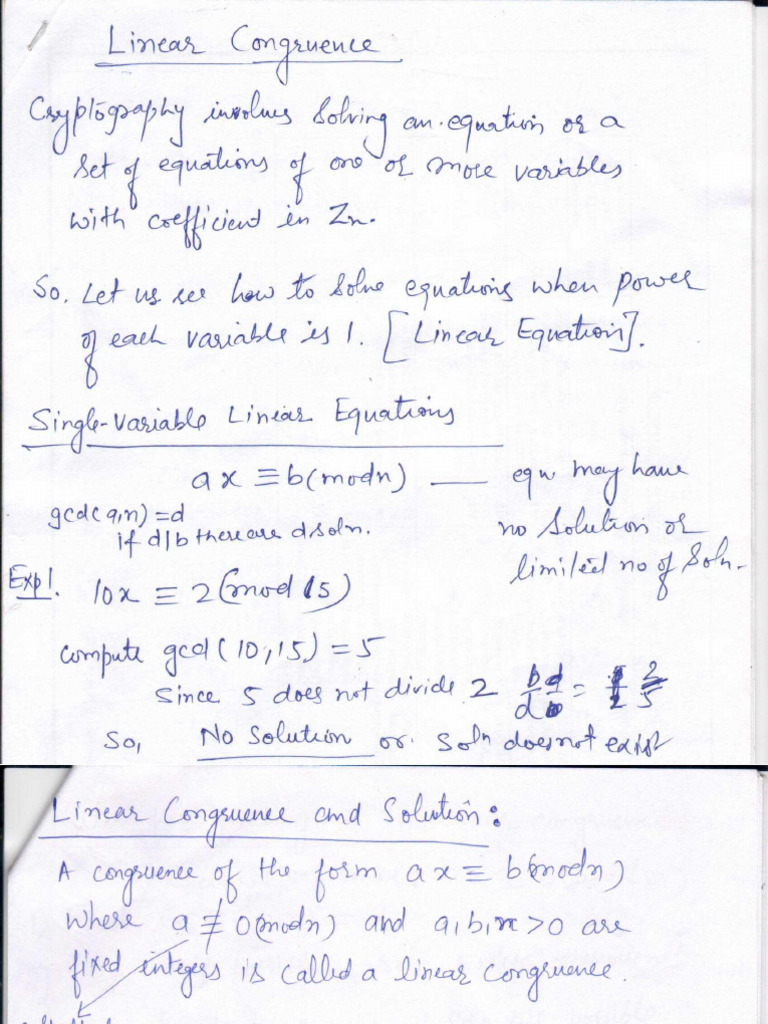 Linear Congruence
Cryptography involves solving an equation or a
set of equations of one or more variables
with coefficient in Zn.
So. Let us see how to solve equations when power
of each variable is 1. [Linear Equation].
Single-variable Linear Equations
ax ≡ b(modn) — eqn may have
gcd(a,n) = d
if d|b there are d soln.
no solution or
limited no of soln.
Exp1. 10x ≡ 2(mod 15)
compute gcd(10,15) = 5
Since 5 does not divide 2 b/d = 2/5
So, No Solution or Soln does not exist
Linear Congruence and Solution:
A congruence of the form ax ≡ b(modn)
where a ≢ 0(modn) and a,b,n > 0 are
fixed integers is called a linear congruence.